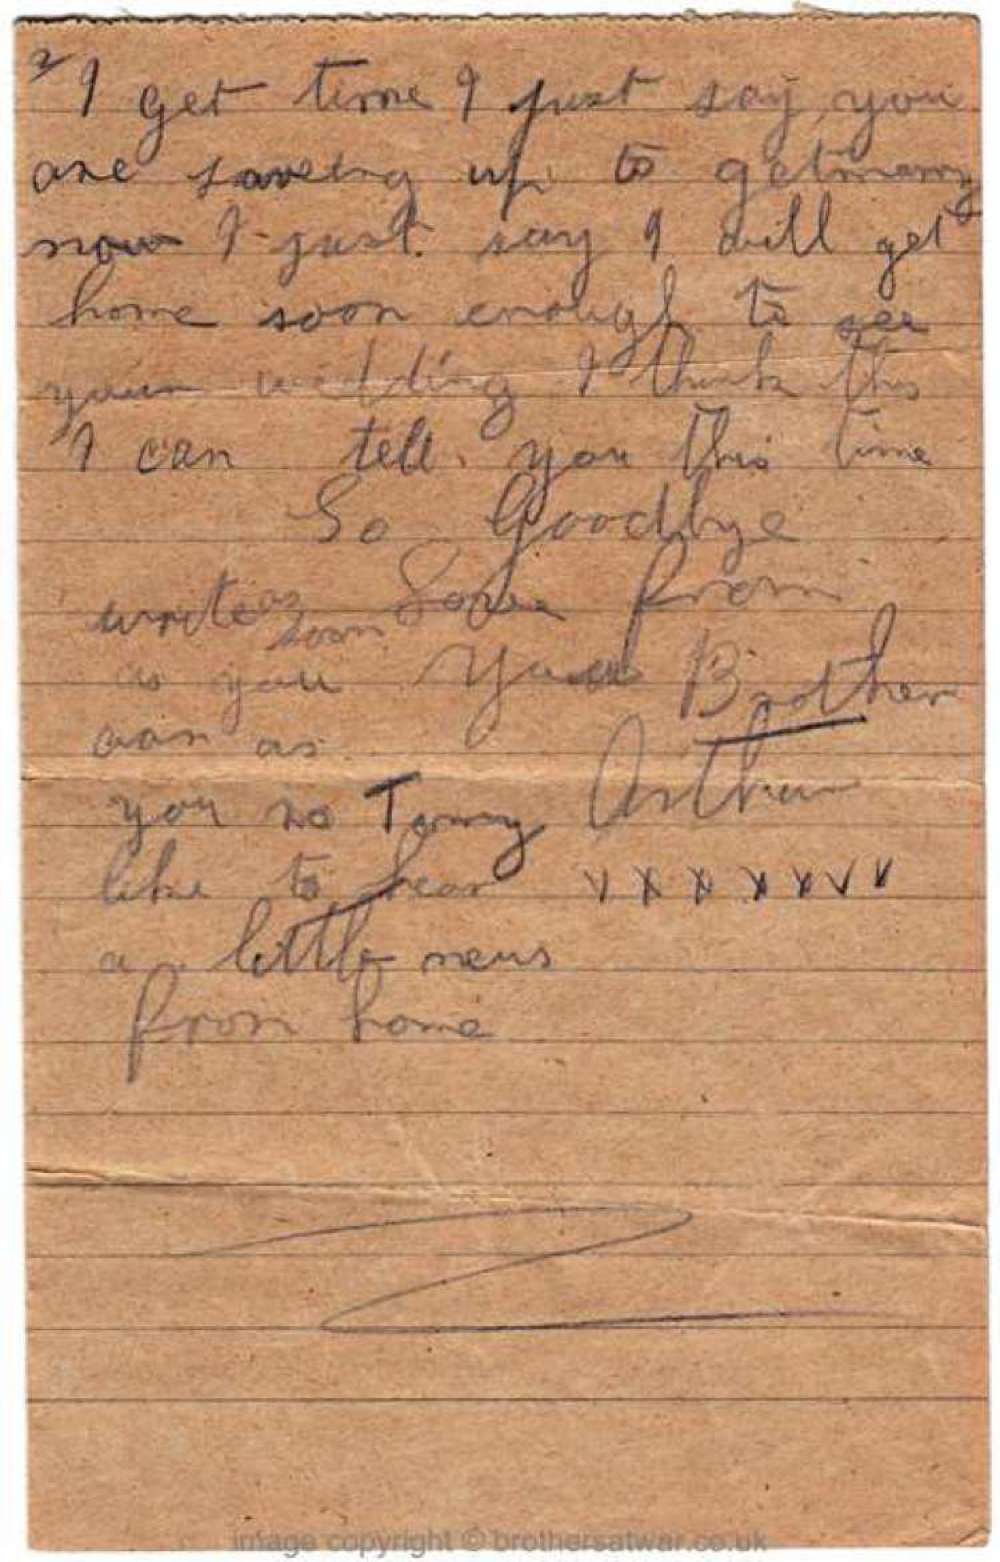 2
I get time I just say you
are saveing up to getmarry
now I just say I will get
home soon enough to see
your wedding I think this
I can tell you this time
So Goodbye
Love from
Your Brother
Arthur
write as
soon
as you
can as
you no Tommy
like to hear
a little news
from home
x x x x x x x
image copyright © brothersatwar.co.uk